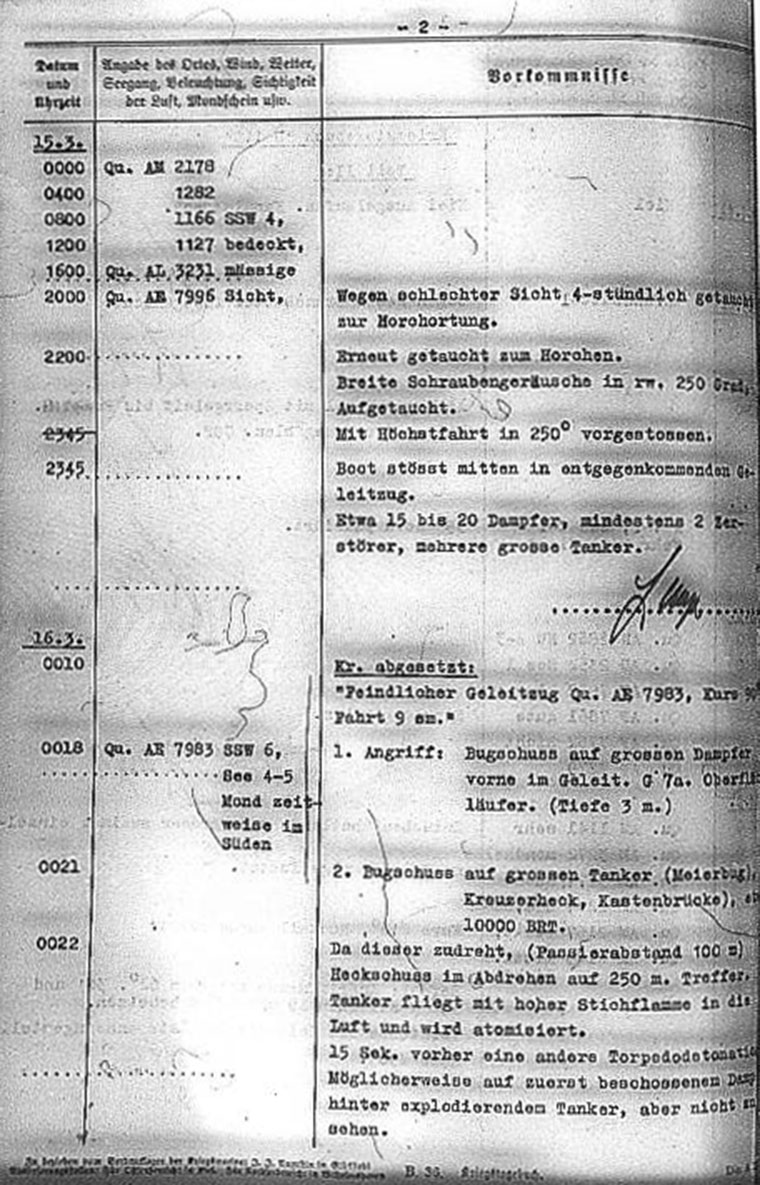 - 2 -
Datum und Uhrzeit
Angabe des Ortes, Wind, Wetter, Seegang, Beleuchtung, Sichtigkeit der Luft, Mondschein usw.
Vorkommnisse
15.3.
0000 Qu. AM 2178
0400 1282
0800 1166 SSW 4,
1200 1127 bedeckt,
1600 Qu. AL 3231 mässige
2000 Qu. AE 7996 Sicht, Wegen schlechter Sicht 4-stündlich getaucht
zur Horchortung.
2200 Erneut getaucht zum Horchen.
Breite Schraubengeräusche in rw. 250 Grad,
Aufgetaucht.
2345 Mit Höchstfahrt in 250° vorgestossen.
2345 Boot stösst mitten in entgegenkommenden Ge-
leitzug.
Etwa 15 bis 20 Dampfer, mindestens 2 Zer-
störer, mehrere grosse Tanker.
16.3.
0010 Kr. abgesetzt:
"Feindlicher Geleitzug Qu. AE 7983, Kurs
Fahrt 9 sm."
0018 Qu. AE 7983 SSW 6, 1. Angriff: Bugschuss auf grossen Dampfer
See 4-5 vorne im Geleit. G 7a. Oberflä
Mond zeit- läufer. (Tiefe 3 m.)
weise im
Süden
0021 2. Bugschuss auf grossen Tanker (Meierbug,
Kreuzerheck, Kastenbrücke),
10000 BRT.
0022 Da dieser zudreht, (Passierabstand 100 m)
Heckschuss im Abdrehen auf 250 m. Treffer.
Tanker fliegt mit hoher Stichflamme in die
Luft und wird atomisiert.
15 Sek. vorher eine andere Torpedodetonatio
Möglicherweise auf zuerst beschossenen Damp
hinter explodierendem Tanker, aber nicht zu
sehen.
B. 36. Kriegstagebuch.